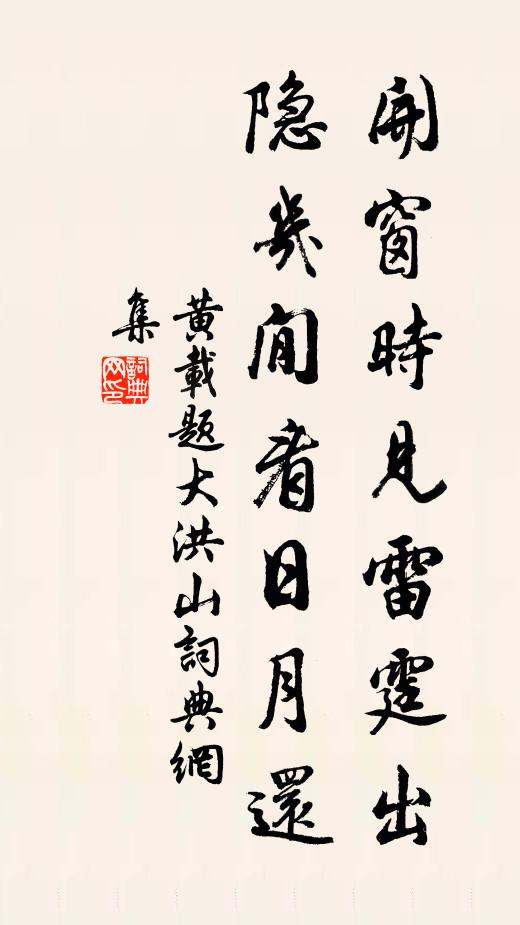 開窗時見雷霆出
隐幾閒看日月還
黄載題大洪山詞典網
集
詞典
网印